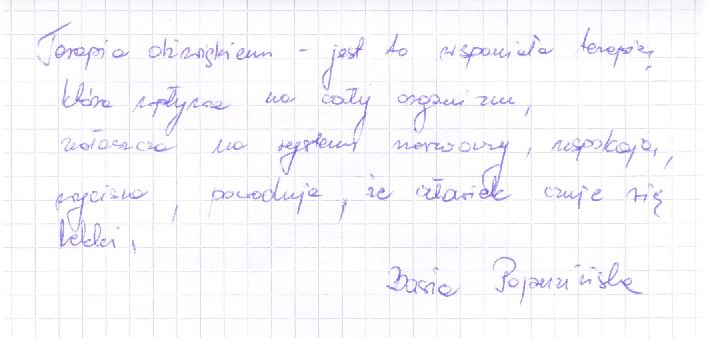 Terapia dźwiękiem - jest to wspaniała terapia,
która wpływa na cały organizm,
zwłaszcza na system nerwowy, uspokaja,
wycisza, powoduje, że człowiek czuje się
lekki,
Basia